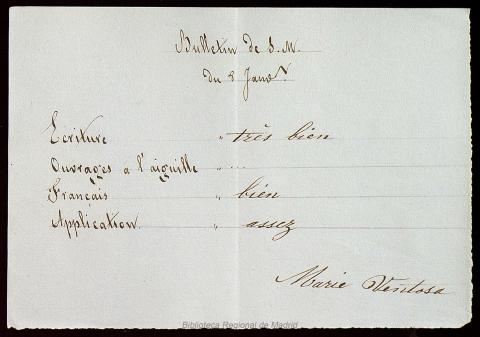 Bulletin de S. M.
du 8 Janvr
Ecriture " très bien
Ouvrages a l'aiguille " ...
Français " bien
Application. " assez
Marie Ventosa
Biblioteca Regional de Madrid